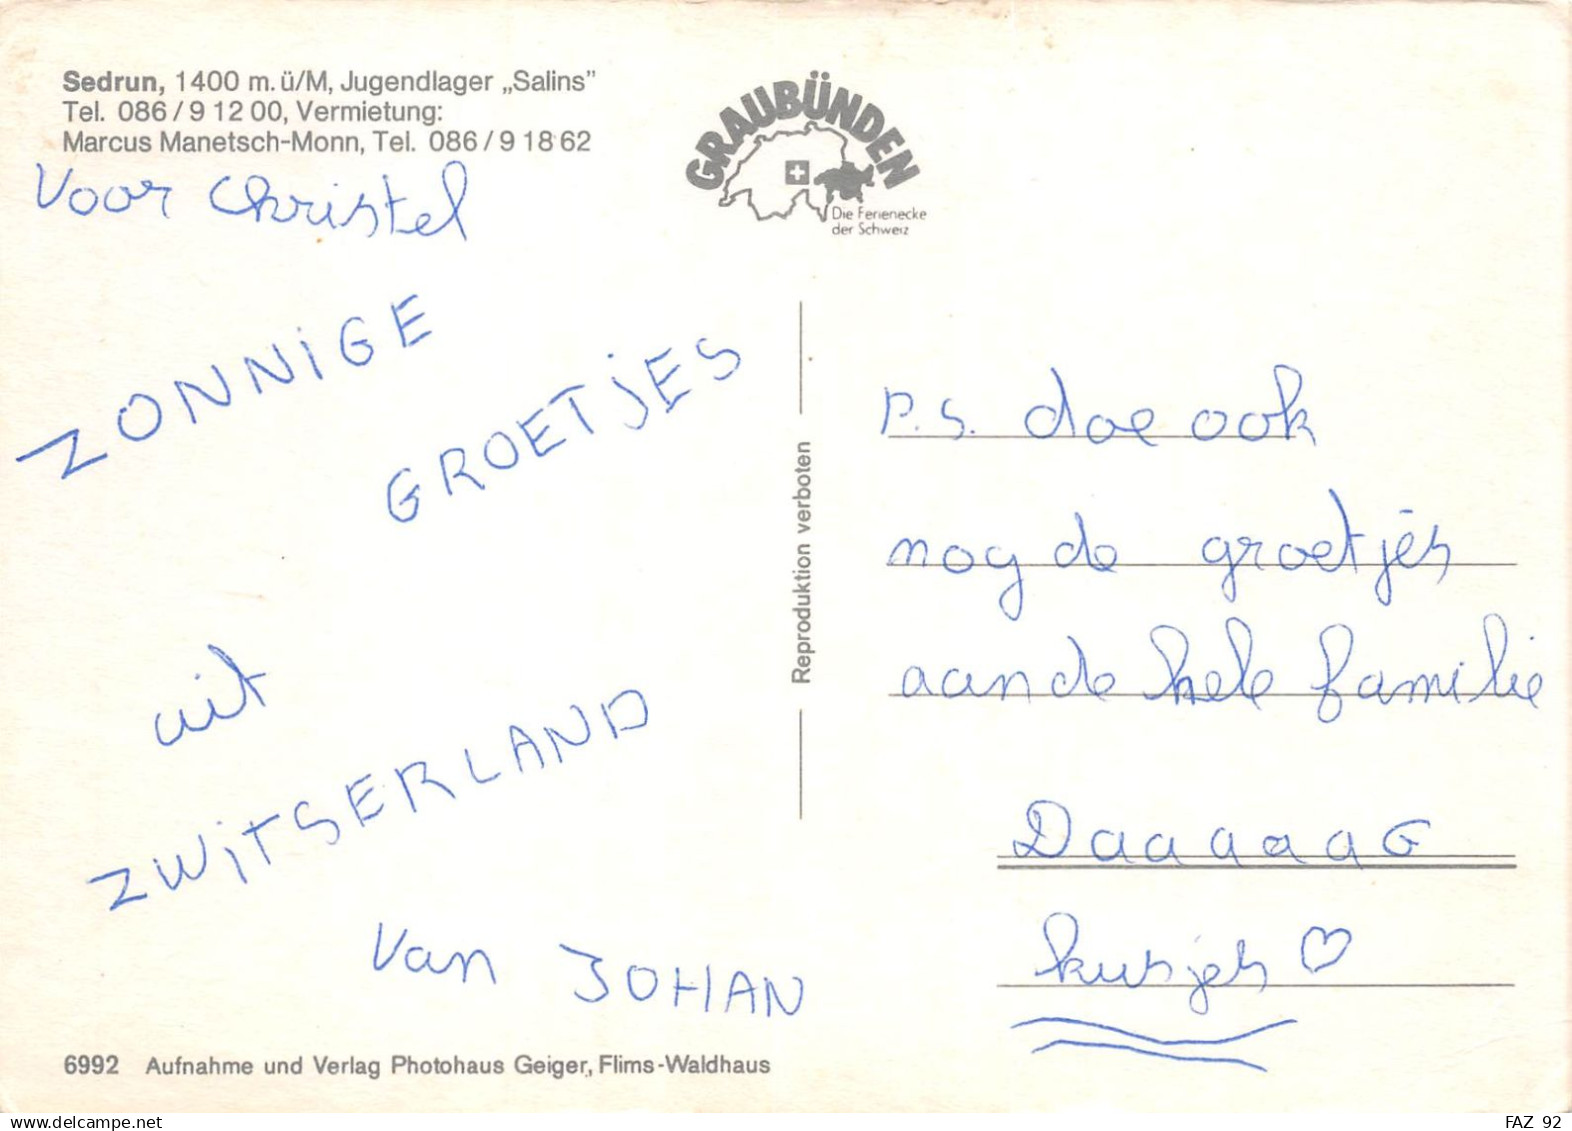 Sedrun, 1400 m. ü/M, Jugendlager „Salins”
Tel. 086 / 9 12 00, Vermietung:
Marcus Manetsch-Monn, Tel. 086 / 9 18 62
GRAUBÜNDEN
Die Ferienecke
der Schweiz
Voor Christel
ZONNIGE
GROETJES
uit
ZWITSERLAND
Van JOHAN
6992 Aufnahme und Verlag Photohaus Geiger, Flims-Waldhaus
Reproduktion verboten
P.S. doe ook
nog de groetjes
aan de hele familie
Daaaaag
kusjes ♡
FAZ 92